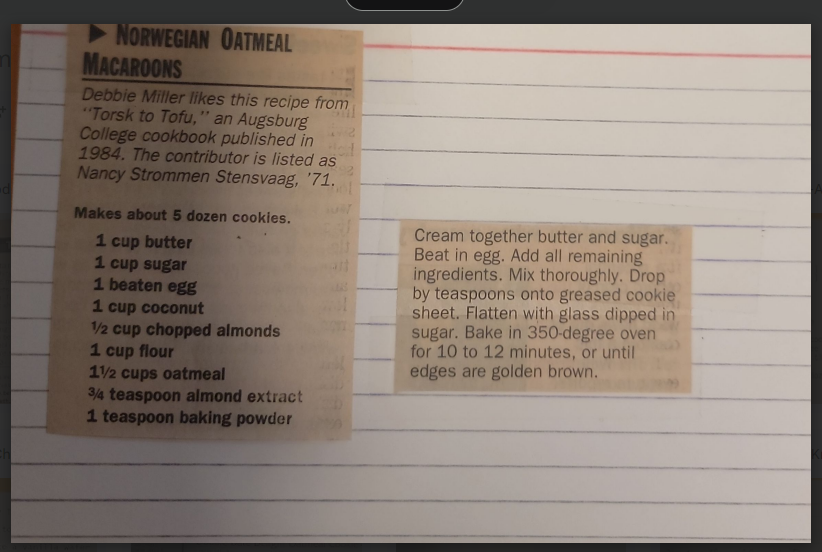 ▶ NORWEGIAN OATMEAL
MACAROONS
Debbie Miller likes this recipe from
"Torsk to Tofu," an Augsburg
College cookbook published in
1984. The contributor is listed as
Nancy Strommen Stensvaag, '71.
Makes about 5 dozen cookies.
1 cup butter
1 cup sugar
1 beaten egg
1 cup coconut
½ cup chopped almonds
1 cup flour
1½ cups oatmeal
¾ teaspoon almond extract
1 teaspoon baking powder
Cream together butter and sugar.
Beat in egg. Add all remaining
ingredients. Mix thoroughly. Drop
by teaspoons onto greased cookie
sheet. Flatten with glass dipped in
sugar. Bake in 350-degree oven
for 10 to 12 minutes, or until
edges are golden brown.